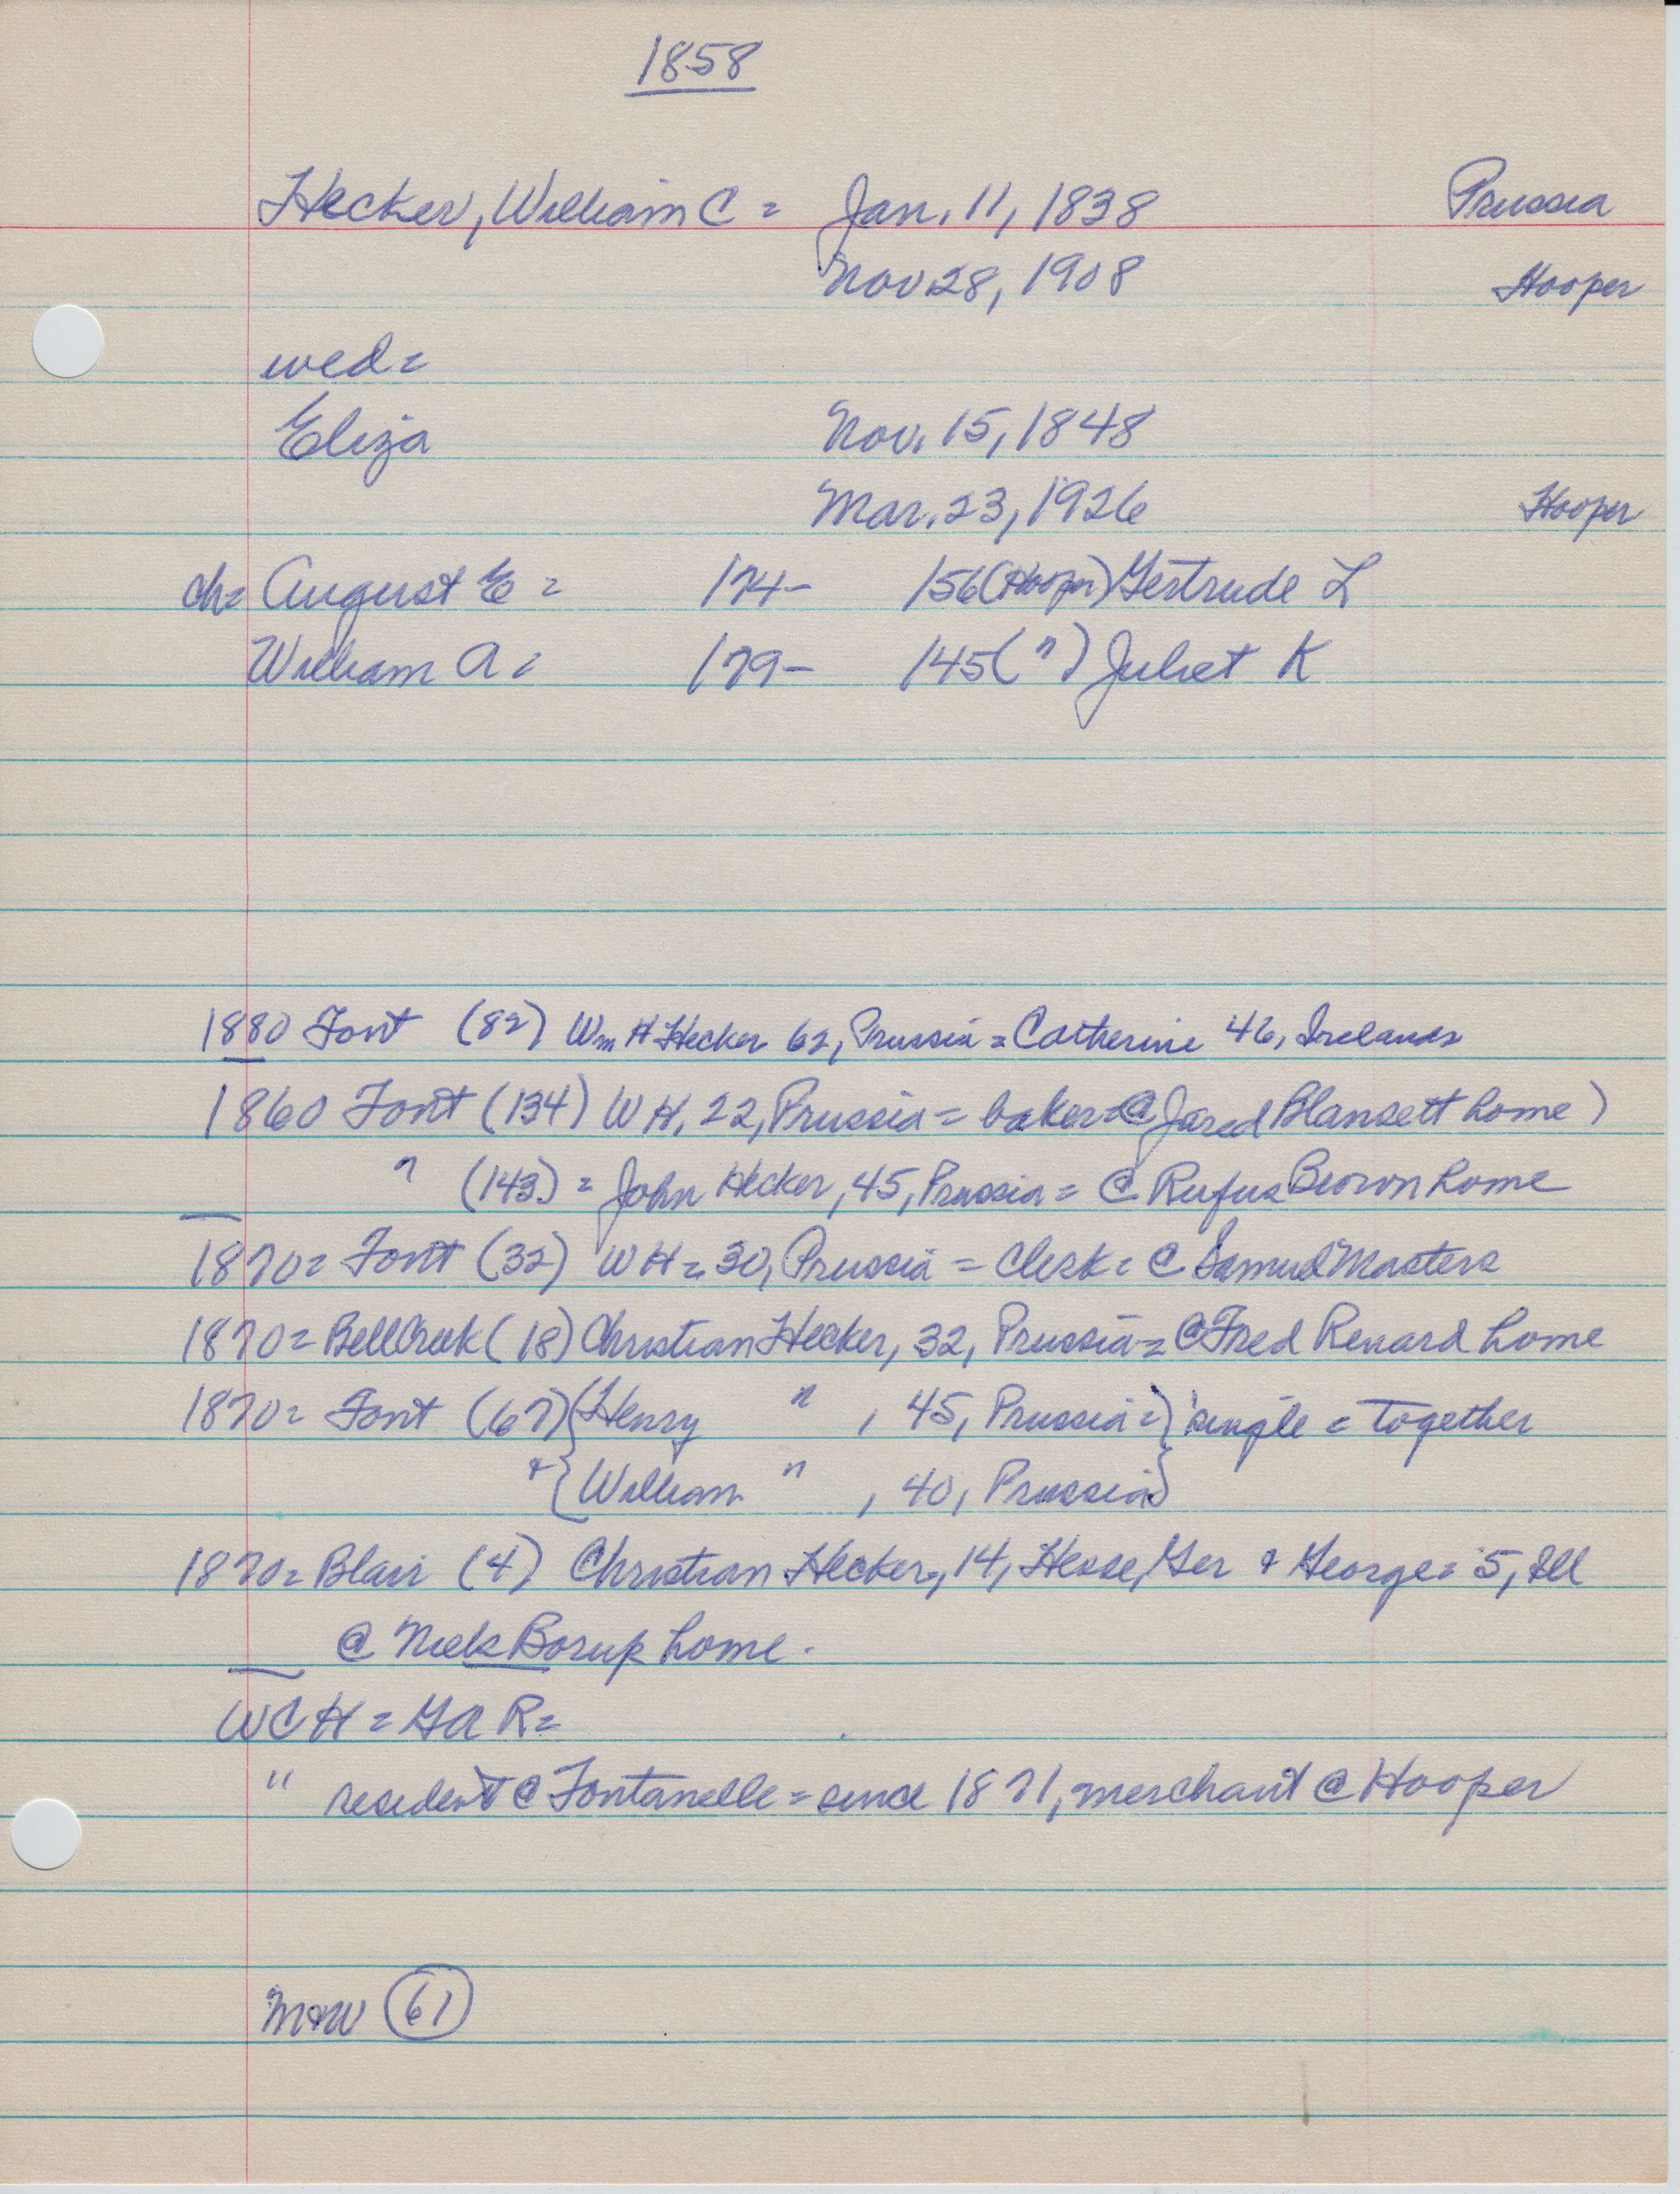 1858
Hecker, William C = Jan. 11, 1838 Prussia
Nov 28, 1908 Hooper
wed =
Eliza Nov. 15, 1848
Mar. 23, 1926 Hooper
ch= August E = 174- 156 (Hooper) Gertrude L
William A = 179- 145 (") Juliet K
1880 Font (82) Wm H Hecker 62, Prussia = Catherine 46, Ireland
1860 Font (134) WH, 22, Prussia = baker = @ Jared Blansett home)
" (143) = John Hecker, 45, Prussia = @ Rufus Brown home
1870 = Font (32) WH = 30, Prussia = Clerk = @ Samuel Masters
1870 = Bell Creek (18) Christian Hecker, 32, Prussia = @ Fred Renard home
1870 = Font (67) {Henry " , 45, Prussia =} single = together
& {William " , 40, Prussia}
1870 = Blair (4) Christian Hecker, 14, Hesse, Ger & George = 5, Ill
@ Niels Borup home.
WCH = GAR =
" resident @ Fontanelle = since 1871, merchant @ Hooper
M&W 61